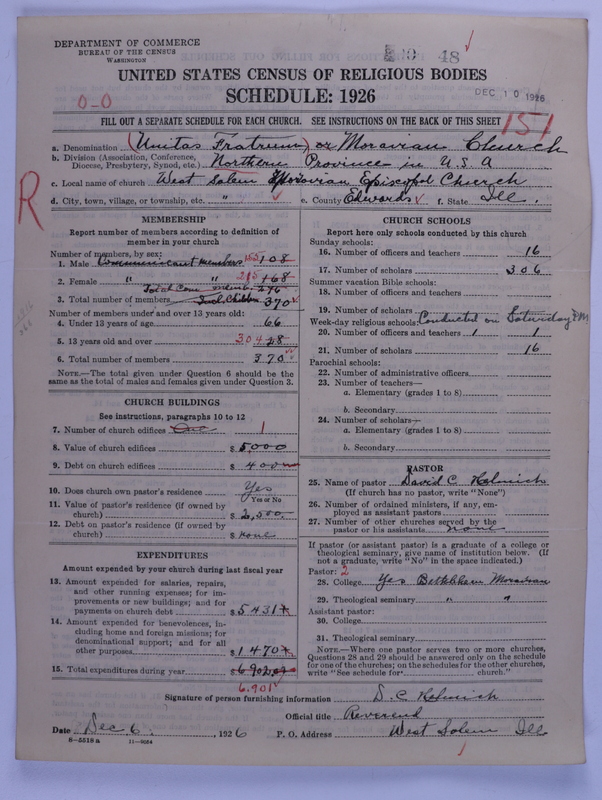 DEPARTMENT OF COMMERCE
BUREAU OF THE CENSUS
WASHINGTON
48
UNITED STATES CENSUS OF RELIGIOUS BODIES
SCHEDULE: 1926
DEC 10 1926
0-0
FILL OUT A SEPARATE SCHEDULE FOR EACH CHURCH. SEE INSTRUCTIONS ON THE BACK OF THIS SHEET
151
R
a. Denomination (Unitas Fratrum) or Moravian Church
b. Division (Association, Conference, Diocese, Presbytery, Synod, etc.) Northern Province in U.S.A
c. Local name of church West Salem Moravian Episcopal Church
d. City, town, village, or township, etc. " e. County Edwards f. State Ill.
MEMBERSHIP
Report number of members according to definition of
member in your church
Number of members, by sex:
1. Male Communicant members 155 108
2. Female " " 215 168
Total Com members 276
3. Total number of members Incl. Children 370
Number of members under and over 13 years old:
4. Under 13 years of age 66
5. 13 years old and over 304
6. Total number of members 370
NOTE.—The total given under Question 6 should be the
same as the total of males and females given under Question 3.
CHURCH BUILDINGS
See instructions, paragraphs 10 to 12
7. Number of church edifices One 1
8. Value of church edifices $ 5000
9. Debt on church edifices $ 400
10. Does church own pastor's residence Yes
Yes or No
11. Value of pastor's residence (if owned by
church) $ 2,500.
12. Debt on pastor's residence (if owned by
church) $ none
EXPENDITURES
Amount expended by your church during last fiscal year
13. Amount expended for salaries, repairs,
and other running expenses; for im-
provements or new buildings; and for
payments on church debt $ 5431
14. Amount expended for benevolences, in-
cluding home and foreign missions; for
denominational support; and for all
other purposes $ 1470
15. Total expenditures during year $ 6902.09
6,901
CHURCH SCHOOLS
Report here only schools conducted by this church
Sunday schools:
16. Number of officers and teachers 16
17. Number of scholars 306
Summer vacation Bible schools:
18. Number of officers and teachers
19. Number of scholars
Week-day religious schools: Conducted on Saturday P.M
20. Number of officers and teachers 1 1
21. Number of scholars 16
Parochial schools:
22. Number of administrative officers
23. Number of teachers—
a. Elementary (grades 1 to 8)
b. Secondary
24. Number of scholars—
a. Elementary (grades 1 to 8)
b. Secondary
PASTOR
25. Name of pastor David C. Helmich
(If church has no pastor, write "None")
26. Number of ordained ministers, if any, em-
ployed as assistant pastors
27. Number of other churches served by the
pastor or his assistants none
If pastor (or assistant pastor) is a graduate of a college or
theological seminary, give name of institution below. (If
not a graduate, write "No" in the space indicated.)
Pastor: 2
28. College Yes Bethlehem Moravian
29. Theological seminary " "
Assistant pastor:
30. College
31. Theological seminary
NOTE.—Where one pastor serves two or more churches,
Questions 28 and 29 should be answered only on the schedule
for one of the churches; on the schedules for the other churches,
write "See schedule for church."
Signature of person furnishing information D. C. Helmich
Official title Reverend
Date Dec 6, 1926 P. O. Address West Salem Ill
8-5518a 11-9054